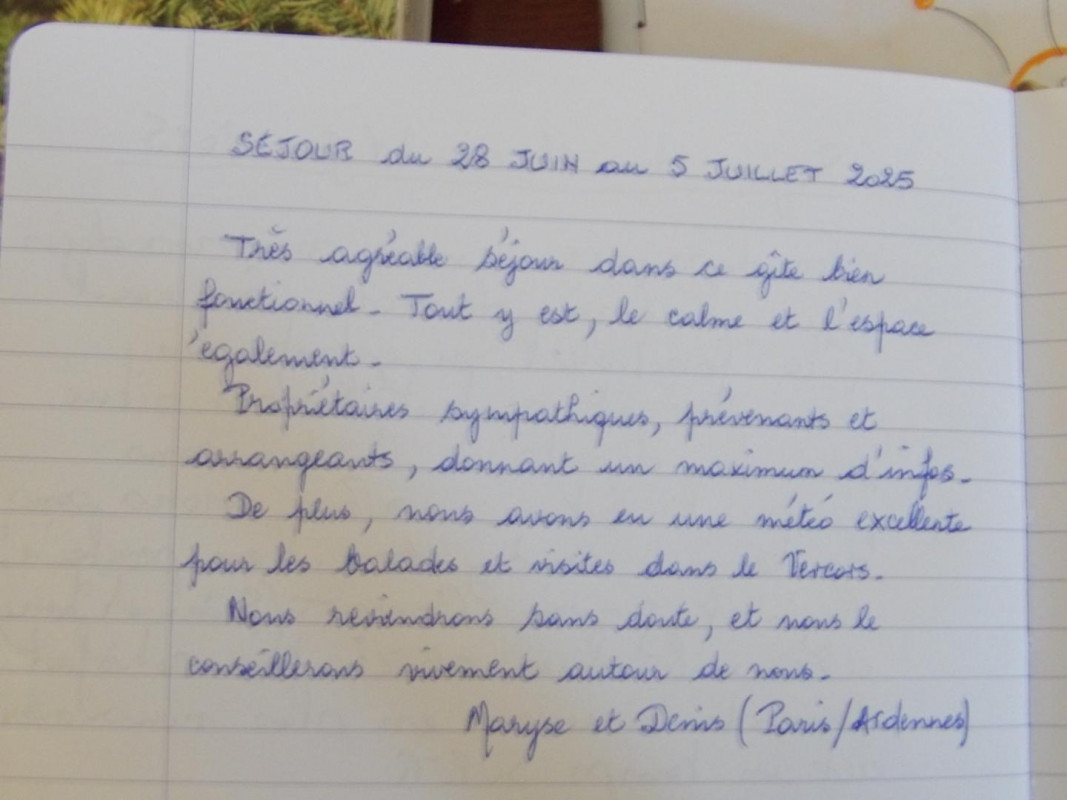 SÉJOUR du 28 JUIN au 5 JUILLET 2025
Très agréable séjour dans ce gîte bien
fonctionnel. Tout y est, le calme et l'espace
également.
Propriétaires sympathiques, prévenants et
arrangeants, donnant un maximum d'infos.
De plus, nous avons eu une météo excellente
pour les balades et visites dans le Vercors.
Nous reviendrons sans doute, et nous le
conseillerons vivement autour de nous.
Maryse et Denis (Paris/Ardennes)